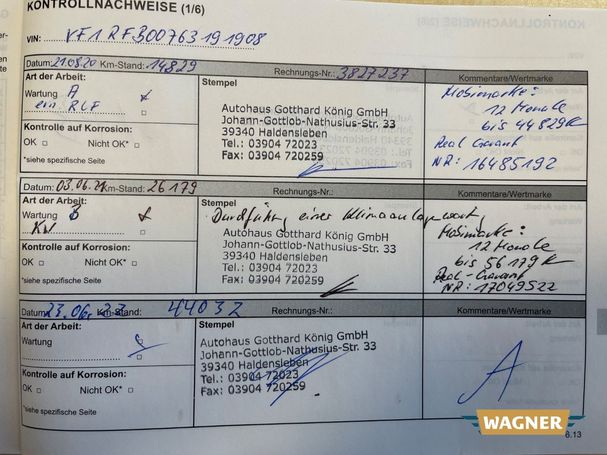 KONTROLLNACHWEISE (1/6)
VIN: VF1RFB00763191908
Datum: 21.08.20 Km-Stand: 14829 Rechnungs-Nr.: 3827237 Kommentare/Wertmarke
Art der Arbeit: Stempel
Wartung A
ein RLF
Autohaus Gotthard König GmbH
Johann-Gottlob-Nathusius-Str. 33
39340 Haldensleben
Tel.: 03904 72023
Fax: 03904 720259
Mobimarke:
12 Monate
bis 44829 K
Real Garant
NR: 16485192
Kontrolle auf Korrosion:
OK Nicht OK*:
*siehe spezifische Seite
Datum: 03.06.21 Km-Stand: 26179 Rechnungs-Nr.: Kommentare/Wertmarke
Art der Arbeit: Stempel
Wartung B
Durchführung einer Klimaanlagenwart.
Autohaus Gotthard König GmbH
Johann-Gottlob-Nathusius-Str. 33
39340 Haldensleben
Tel.: 03904 72023
Fax: 03904 720259
Mobimarke:
12 Monate
bis 56179 K
Real-Garant
NR: 17049522
Kontrolle auf Korrosion:
OK Nicht OK*
*siehe spezifische Seite
Datum: 23.06.23 Km-Stand: 44032 Rechnungs-Nr.: Kommentare/Wertmarke
Art der Arbeit: Stempel
Wartung
Autohaus Gotthard König GmbH
Johann-Gottlob-Nathusius-Str. 33
39340 Haldensleben
Tel.: 03904 72023
Fax: 03904 720259
A
Kontrolle auf Korrosion:
OK Nicht OK*
*siehe spezifische Seite
WAGNER
6.13